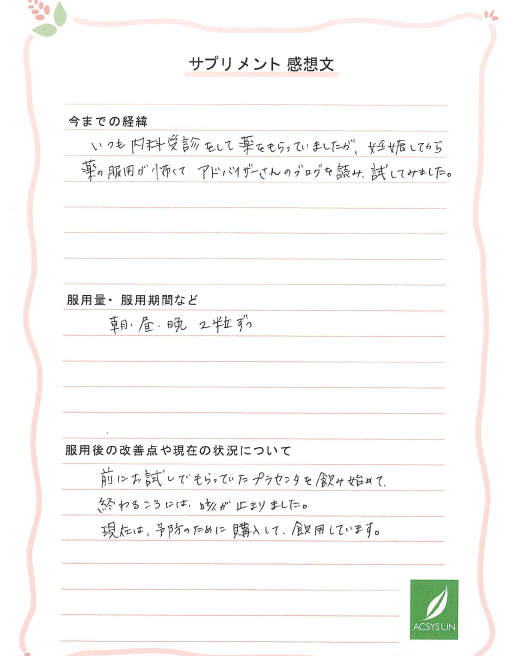 サプリメント 感想文
今までの経緯
いつも内科受診をして薬をもらっていましたが、妊娠してから
薬の服用が怖くて アドバイザーさんのブログを読み、試してみました。
服用量・服用期間など
朝・昼・晩 2粒ずつ
服用後の改善点や現在の状況について
前にお試しでもらっていたプラセンタを飲み始めて、
終わるころには、咳が止まりました。
現在は、予防のために購入して、飲用しています。
ACSYSUN